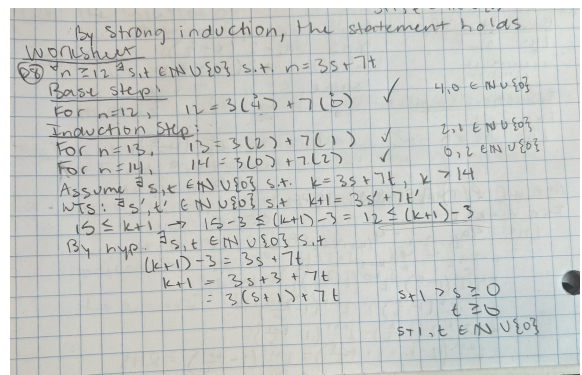 By strong induction, the statement holds
Worksheet
68 ∀n ≥ 12 ∃s,t ∈ ℕ ∪ {0} s.t. n = 3s + 7t
Base step:
For n=12, 12 = 3(4) + 7(0) ✓ 4,0 ∈ ℕ ∪ {0}
Induction Step:
For n=13, 13 = 3(2) + 7(1) ✓ 2,1 ∈ ℕ ∪ {0}
For n=14, 14 = 3(0) + 7(2) ✓ 0,2 ∈ ℕ ∪ {0}
Assume ∃s,t ∈ ℕ ∪ {0} s.t. k = 3s + 7t, k > 14
WTS: ∃s',t' ∈ ℕ ∪ {0} s.t k+1 = 3s' + 7t'
15 ≤ k+1 → 15-3 ≤ (k+1)-3 = 12 ≤ (k+1)-3
By hyp. ∃s,t ∈ ℕ ∪ {0} s.t
(k+1)-3 = 3s + 7t
k+1 = 3s + 3 + 7t
= 3(s+1) + 7t
s+1 > s ≥ 0
t ≥ 0
s+1, t ∈ ℕ ∪ {0}